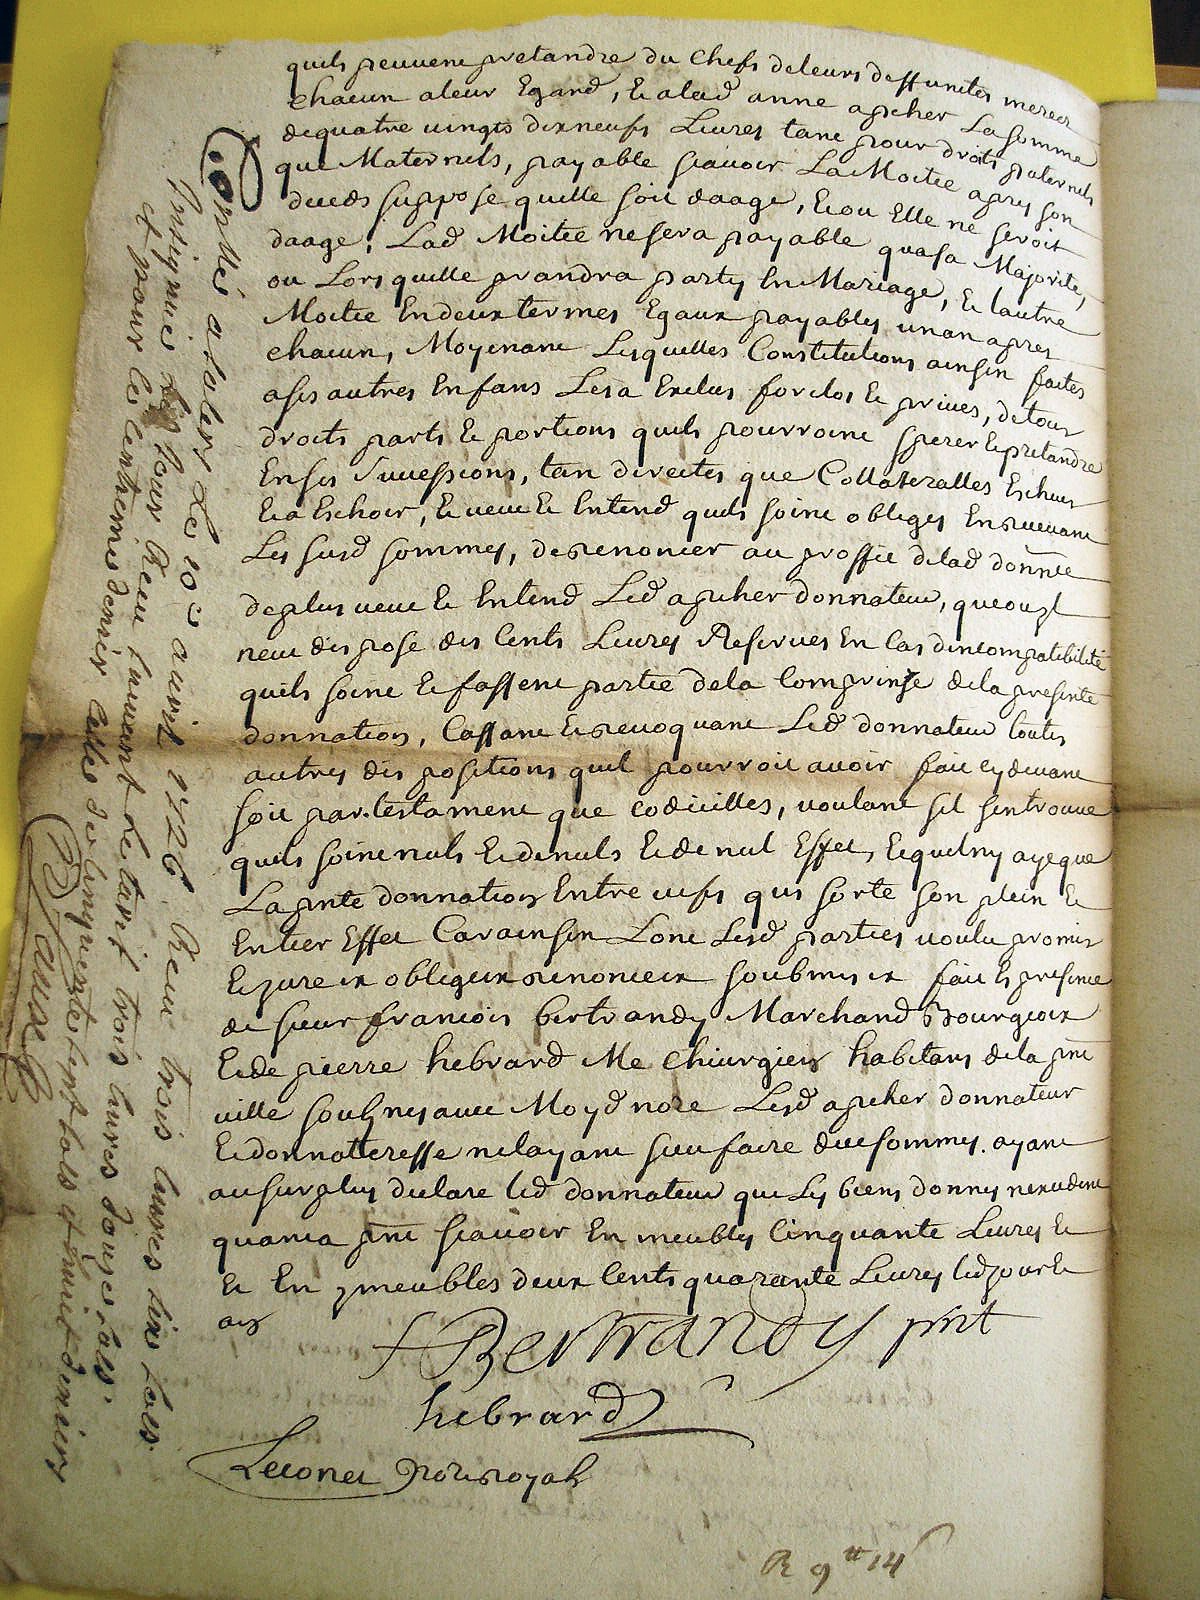 quils peuvent pretandre du Chefs deleurs deffuntes meres
chacun aleur Egard, Et alad anne apcher La somme
dequatre vingts dixneufs Livres tant pour droits paternels
que Maternels, payable scauoir La Moitie apres son
deceds suppose quelle soit daage, Et ou Elle ne seroit
daage, Lad Moitie nesera payable quasa Majorité,
ou Lors quelle prandra party En Mariage, Et lautre
Moitie En deux termes Egaux payables unan apres
chacun, Moyenant Lesquelles Constitutions ainsin faites
ases autres Enfans Lesa Exclus forclos Et prives, detous
droits parts Et portions quils pourroint sperer Et pretandre
En ses successions, tan directes que Collateralles Escheues
Et a Eschoir, Et veut Et Entend quils soint obliges En recevant
Les susd sommes, de renoncer au proffit delad donnõn
deplus veut Et Entend Led apcher donnateur, que ou il
neut dispose des Cents Livres Reserves En Cas dincompatibilité
quils soint Et fassent partie dela Comprinse dela presente
donnation, Cassant Et revoquant Led donnateur toutes
autres dispositions quil pourroit avoir fait cy devant
soit par testament que codicilles, voulant sil sentrouve
quils soint nuls Et de nuls Et de nul Effet, Et quil ny aye que
La pnte donnation Entre vifs qui sorte son plein Et
Entier Effet Car ainsin Lont Lesd parties voulu promis
Et jure ex obligeex renonceex soubmis ex fait Es presence
de sieur francois bertrandy Marchand Bourgeois
Et de pierre hebrard Me Chiurgien habitans dela pnt
ville soulznes avec Moyd nore Lesd apcher donnateur
Et donnatteresse nelayant sceu faire de ce sommes. ayant
au surplus declare led donnateur que Les biens donnes nexcedent
quant a pnt scauoir En meubles Cinquante Livres Et
Et En ymeubles deux Cents quarante Livres led jour Et
an
f Bertrandy pnt
hebrard
Leconet nore royal
R 9tt 14s
Conlle a Sales Le 10e avril 1726. Reçu trois Livres six sols
Insignué Led jour Recu suivant le tarif trois livres douze sols.
et pour les centiesme denier celles de cinquante sept sols et huit deniers